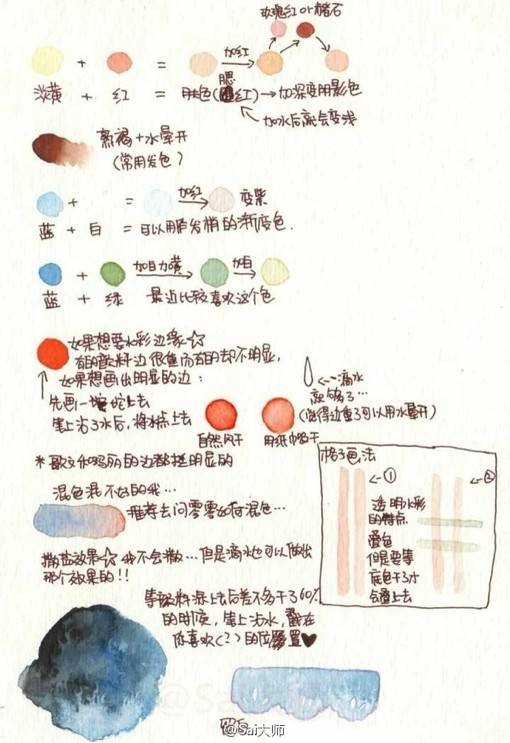 玫瑰红or赭石
加红
+ =
淡黄 + 红 = 肤色(腮红)→加深变阴影色
加水后就会变浅
熟褐+水晕开
(常用发色)
+ = 加红 变紫
蓝 + 白 = 可以用尾发梢的渐变色.
+ 加白加黄 加白
蓝 + 绿 最近比较喜欢这个色
如果想要水彩边缘☆
有的颜料边很重而有的却不明显,
如果想画出明显的边:
先画一坨坨上去
笔上沾了水后,将水点上去
←滴水
就够了…
(觉得边重了可以用水晕开)
自然风干
用纸巾吸干
的边都挺明显的
混色混不好的我…
推荐去问零零如何混色…
撒盐效果☆我不会撒…但是滴水也可以做出
那个效果的!!
格子画法
① ②
透明水彩
的特点
叠色
但是要等
底色干了才
会叠上去
等颜料涂上去后差不多干了60%
的时候,笔上沾水,戳在
你喜欢(?)的位置♥
@Sai大师